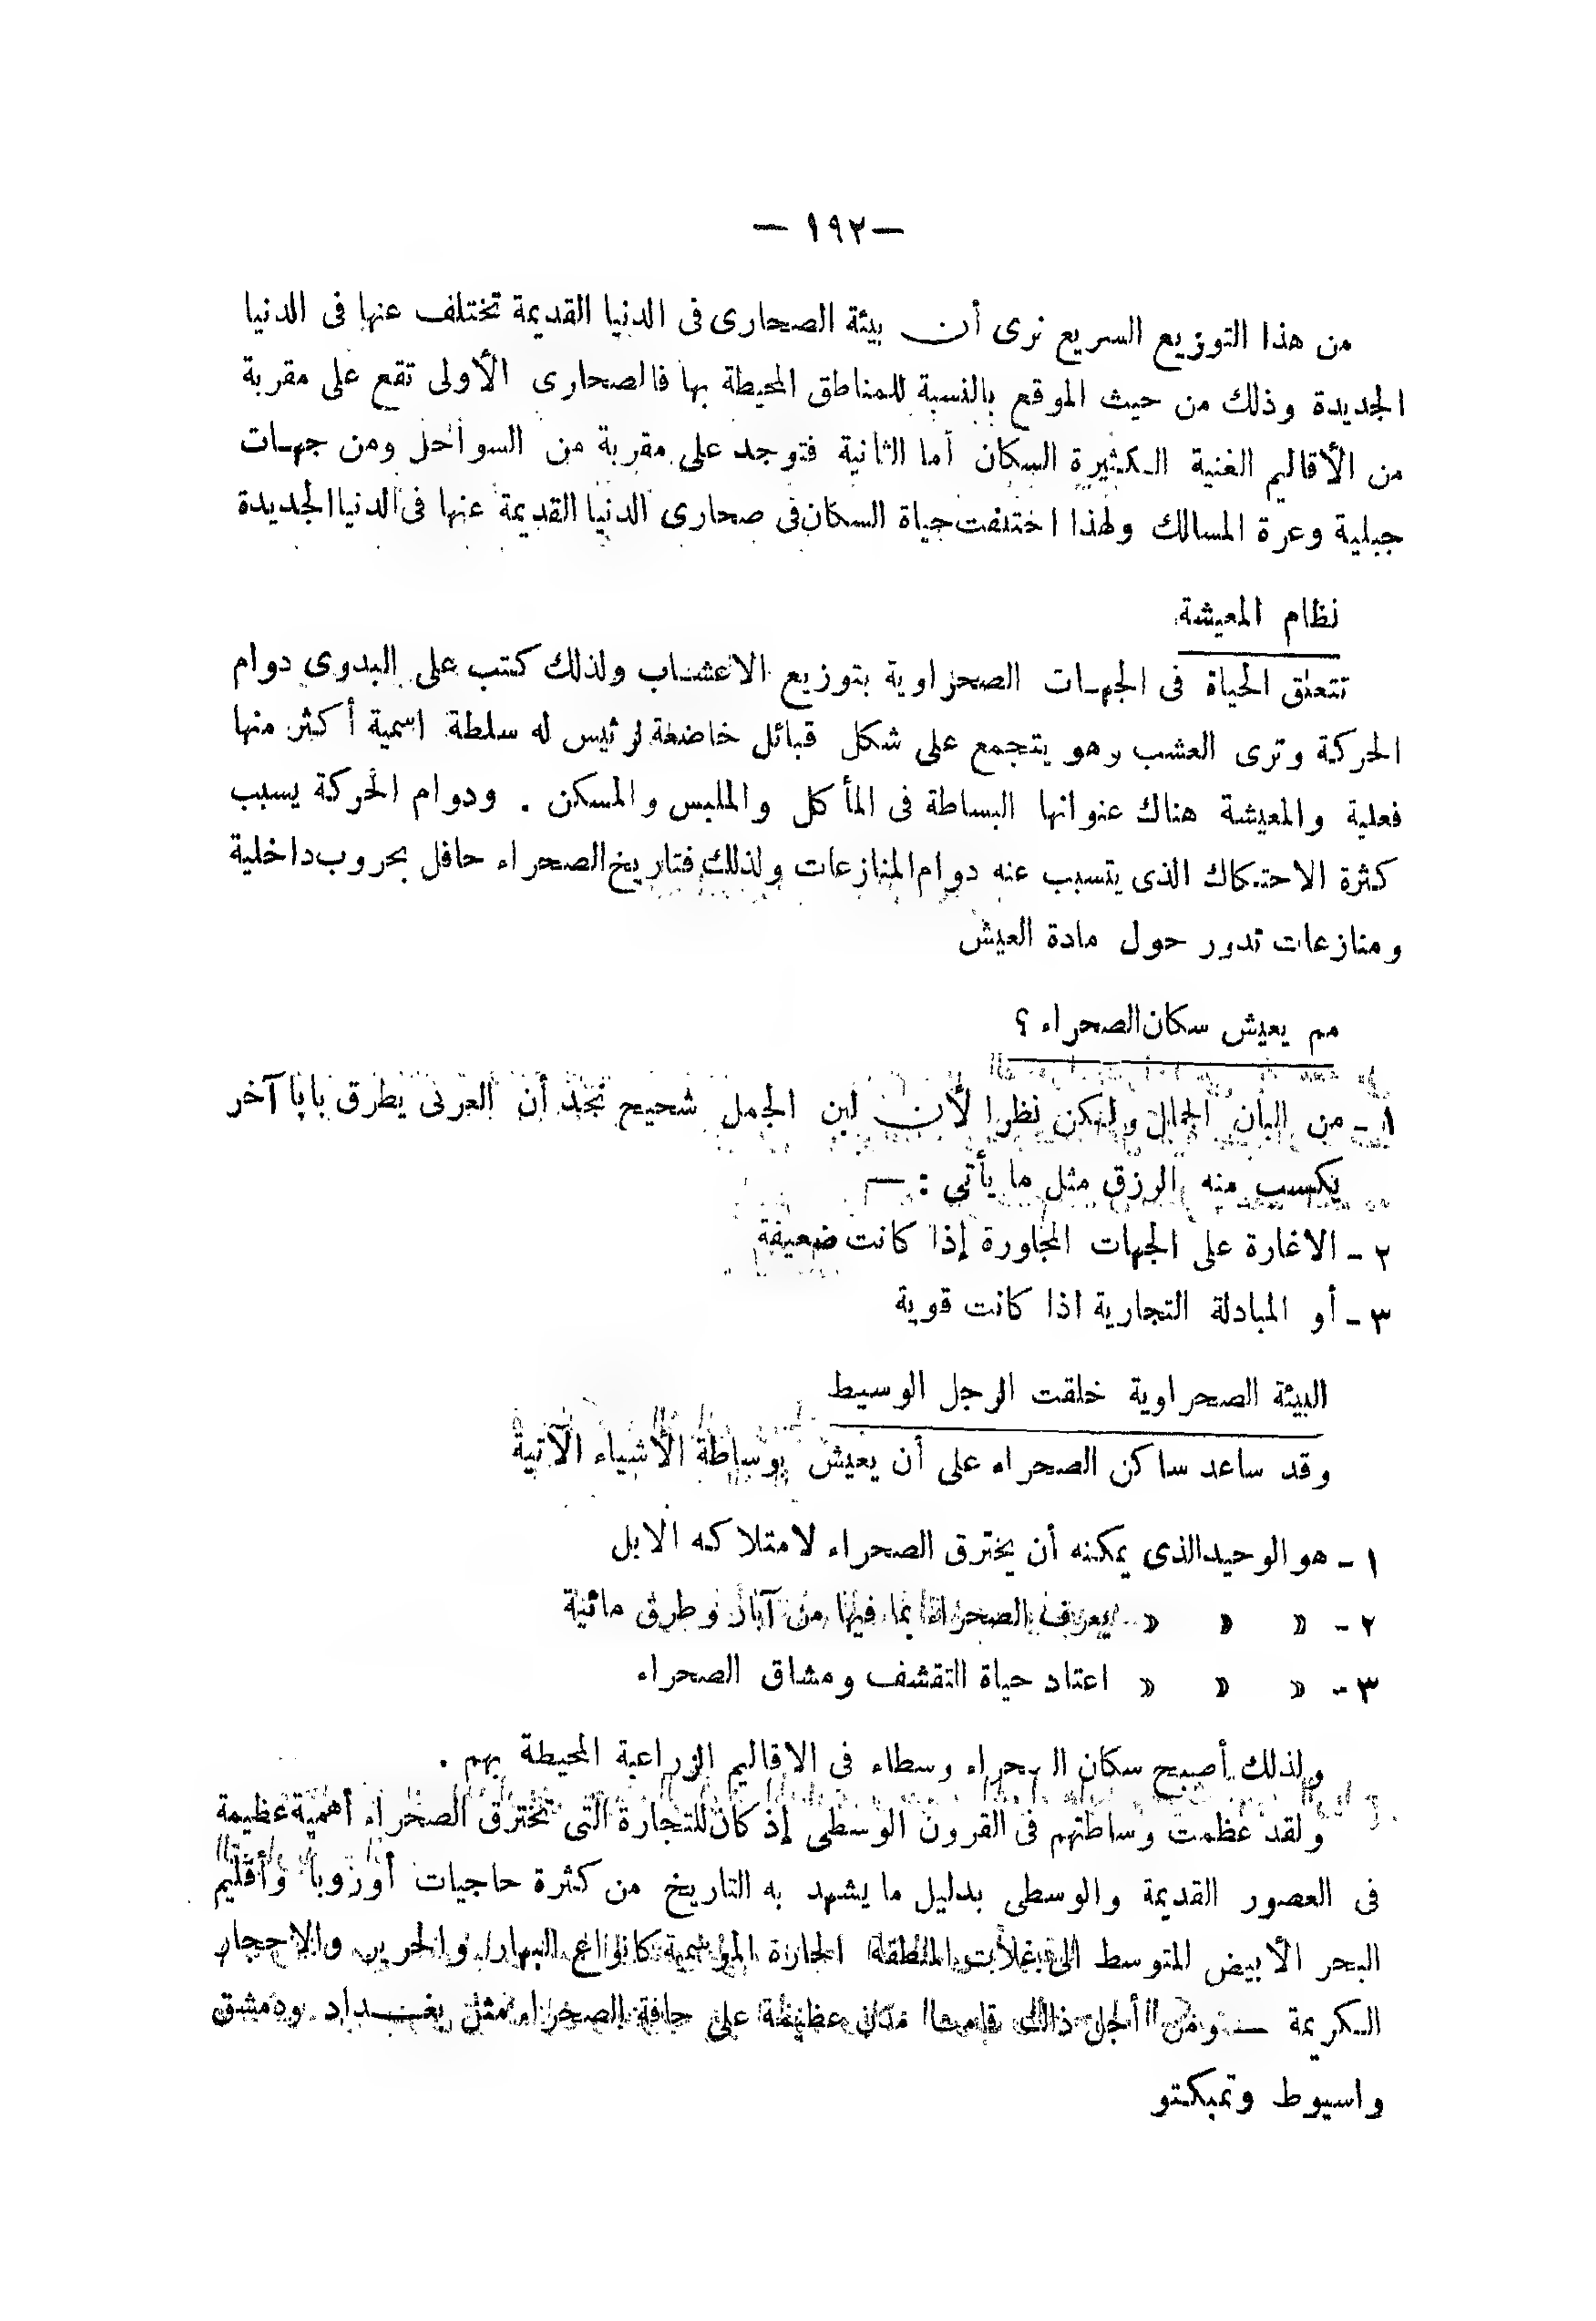 — ١٩٢ —
من هذا التوزيع السريع نرى أن بيئة الصحارى فى الدنيا القديمة تختلف عنها فى الدنيا
الجديدة وذلك من حيث الموقع بالنسبة للمناطق المحيطة بها فالصحارى الأولى تقع على مقربة
من الأقاليم الغنية الكثيرة السكان أما الثانية فتوجد على مقربة من السواحل ومن جهات
جبلية وعرة المسالك ولهذا اختلفت حياة السكان فى صحارى الدنيا القديمة عنها فى الدنيا الجديدة
نظام المعيشة
تتعلق الحياة فى الجهات الصحراوية بتوزيع الاعشاب ولذلك كتب على البدوى دوام
الحركة وترى العشب وهو يتجمع على شكل قبائل خاضعة لرئيس له سلطة اسمية أكثر منها
فعلية والمعيشة هناك عنوانها البساطة فى المأكل والملبس والمسكن . ودوام الحركة يسبب
كثرة الاحتكاك الذى يتسبب عنه دوام المنازعات ولذلك فتاريخ الصحراء حافل بحروب داخلية
ومنازعات تدور حول مادة العيش
مم يعيش سكان الصحراء ؟
١ - من البان الجمال ولكن نظرا لأن لبن الجمل شحيح نجد أن العربى يطرق بابا آخر
يكسب منه الرزق مثل ما يأتى : —
٢ - الاغارة على الجهات المجاورة إذا كانت ضعيفة
٣ - أو المبادلة التجارية اذا كانت قوية
البيئة الصحراوية خلقت الرجل الوسيط
وقد ساعد ساكن الصحراء على أن يعيش بوساطة الأشياء الآتية
١ - هو الوحيد الذى يمكنه أن يخترق الصحراء لامتلاكه الابل
٢ - » » » يعرف الصحراء بما فيها من آبار وطرق مائية
٣ - » » » اعتاد حياة التقشف ومشاق الصحراء
ولذلك أصبح سكان الصحراء وسطاء فى الاقاليم الزراعية المحيطة بهم .
ولقد عظمت وساطتهم فى القرون الوسطى إذ كان للتجارة التى تخترق الصحراء أهمية عظيمة
فى العصور القديمة والوسطى بدليل ما يشهد به التاريخ من كثرة حاجيات أوروبا وأقليم
البحر الأبيض المتوسط الى غلات المنطقة الحارة الموسمية كانواع البهار والحرير والاحجار
الكريمة — ومن أجل ذلك قامت مدن عظيمة على حافة الصحراء مثل بغداد ودمشق
واسيوط وتمبكتو